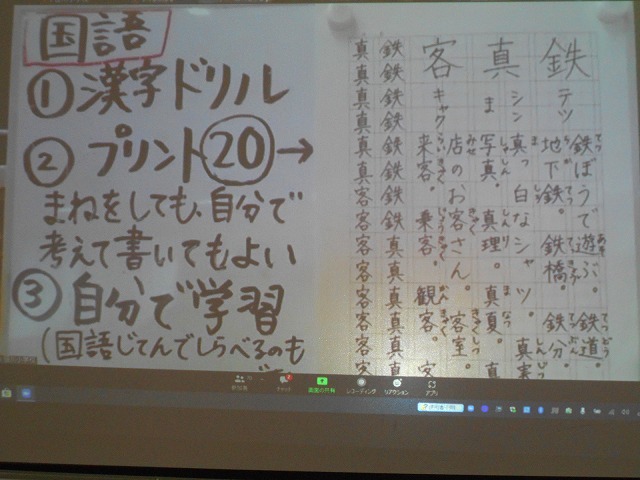 国語
①漢字ドリル
②プリント⑳→
まねをしても、自分で
考えて書いてもよい
③自分で学習
(国語じてんでしらべるのも
鉄 テツ 鉄ぼうで遊ぶ。鉄道。
地下鉄。鉄橋。鉄分。
真 シン 真っ白なシャツ。真実
ま 写真。真理。真夏。真
客 キャク 店のお客さん。客室。
来客。乗客。観客。客
鉄鉄鉄鉄鉄鉄鉄鉄真真真真真真
真真真真真真客客客客客客客客
チャット 画面の共有 レコーディング リアクション アプリ